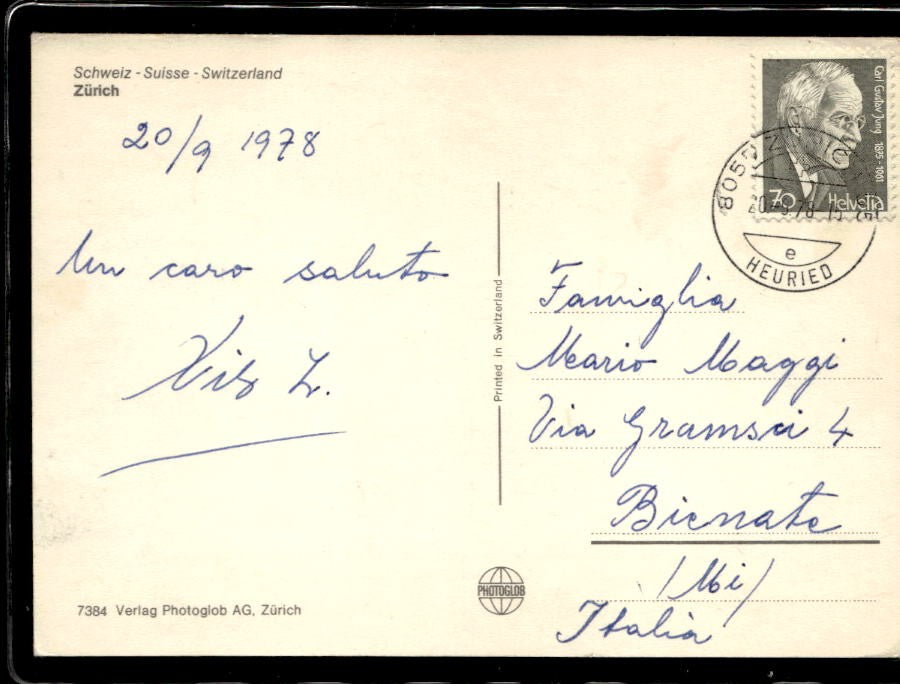 Schweiz - Suisse - Switzerland
Zürich
20/9 1978
Un caro saluto
Carl Gustav Jung 1875 - 1961
70 Helvetia
8055
20.-9.78
e
HEURIED
Printed in Switzerland
Famiglia
Mario Maggi
Via Gramsci 4
Bienate
(Mi)
Italia
PHOTOGLOB
7384 Verlag Photoglob AG, Zürich